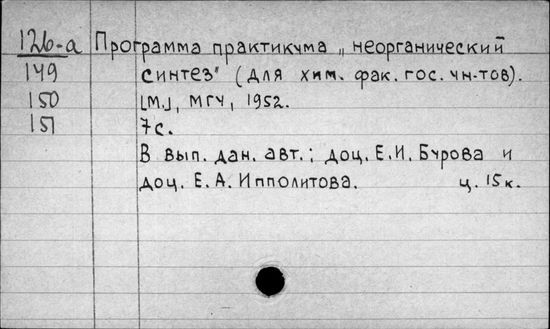 126-а Программа практикума „неорганический
149 синтез" (для хим. фак. гос. ун-тов).
150 [М.], МГУ, 1952.
151 7с.
В вып. дан. авт.; доц. Е.И. Бурова и
доц. Е.А. Ипполитова. ц. 15к.